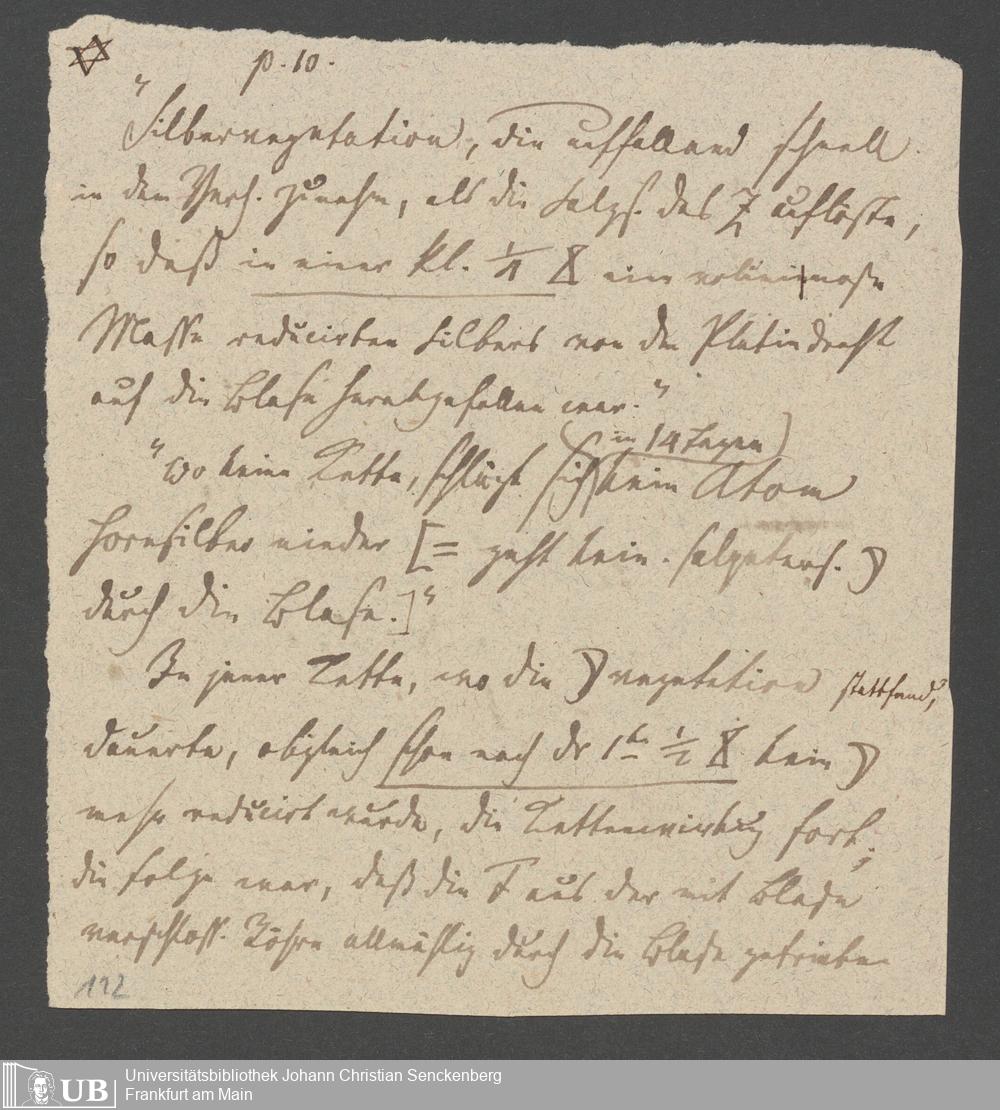 p. 10.
"Silbervegetation, die auffallend schnell
in dem Verh. zunahm, als die Salzs. das Z auflöste,
so daß in einer kl. 1/4 X eine voluminose
Masse reducirten Silbers von dem Platindraht
auf die Blase herabgefallen war."
"Wo keine Kette, schlägt sich (in 14 Tagen) kein Atom
Hornsilber nieder [= geht kein salpeters. ☽
durch die Blase.]"
In jener Kette, wo die ☽ vegetation stattfand,
dauerte, obgleich schon nach der 1ten 1/2 X kein ☽
mehr reducirt wurde, die Kettenwirkung fort;
die Folge war, daß die F aus der mit Blase
verschloss. Röhre allmählig durch die Blase getrieben
112
UB
Universitätsbibliothek Johann Christian Senckenberg
Frankfurt am Main